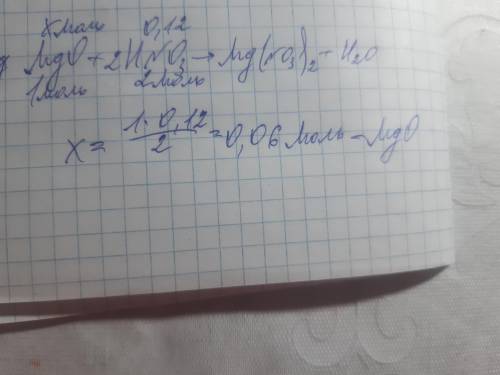 x моль 0,12
MgO + 2HNO₃ → Mg(NO₃)₂ + H₂O
1 моль 2 моль
x = 1·0,12 / 2 = 0,06 моль – MgO